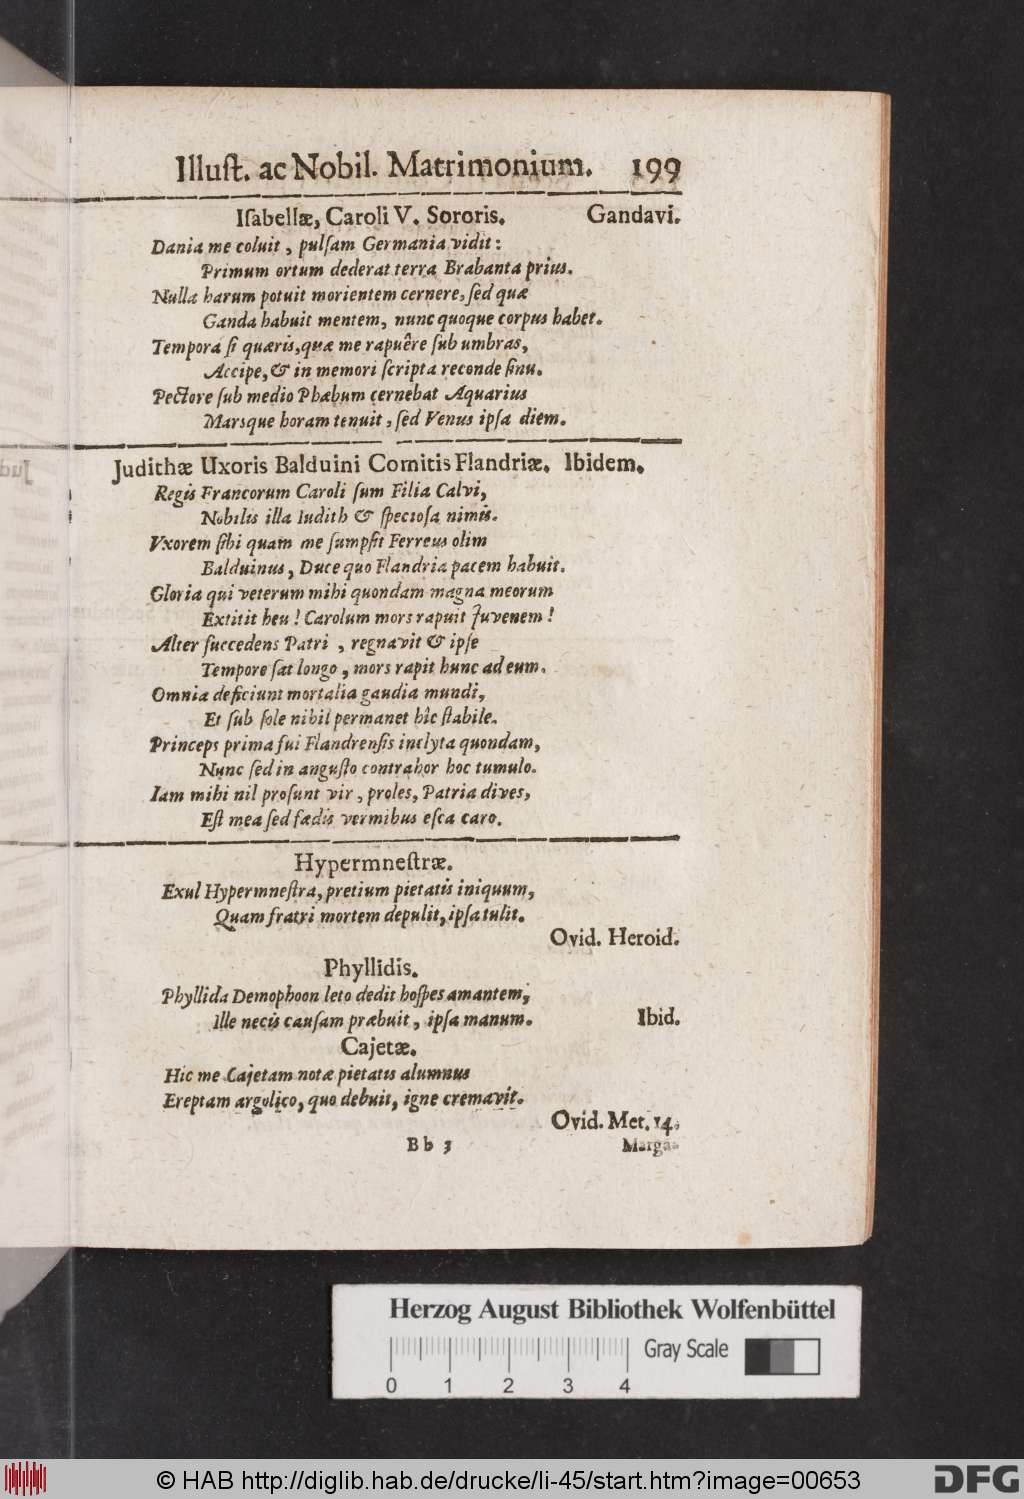 Illuſt. ac Nobil. Matrimonium. 199
Iſabellæ, Caroli V. Sororis. Gandavi.
Dania me coluit, pulſam Germania vidit:
Primum ortum dederat terra Brabanta prius.
Nulla harum potuit morientem cernere, ſed quæ
Ganda habuit mentem, nunc quoque corpus habet.
Tempora ſi quæris, quæ me rapuêre ſub umbras,
Accipe, & in memori ſcripta reconde ſinu.
Pectore ſub medio Phæbum cernebat Aquarius
Marsque horam tenuit, ſed Venus ipſa diem.
Judithæ Uxoris Balduini Comitis Flandriæ. Ibidem.
Regis Francorum Caroli ſum Filia Calvi,
Nobilis illa Iudith & ſpecioſa nimis.
Vxorem ſibi quam me ſumpſit Ferreus olim
Balduinus, Duce quo Flandria pacem habuit.
Gloria qui veterum mihi quondam magna meorum
Extitit heu! Carolum mors rapuit Juvenem!
Alter ſuccedens Patri, regnavit & ipſe
Tempore ſat longo, mors rapit hunc ad eum.
Omnia deficiunt mortalia gaudia mundi,
Et ſub ſole nihil permanet hîc ſtabile.
Princeps prima fui Flandrenſis inclyta quondam,
Nunc ſed in anguſto contrahor hoc tumulo.
Iam mihi nil proſunt vir, proles, Patria dives,
Eſt mea ſed fædis vermibus eſca caro.
Hypermneſtræ.
Exul Hypermneſtra, pretium pietatis iniquum,
Quam fratri mortem depulit, ipſa tulit.
Ovid. Heroid.
Phyllidis.
Phyllida Demophoon leto dedit hoſpes amantem;
Ille necis cauſam præbuit, ipſa manum. Ibid.
Cajetæ.
Hic me Cajetam notæ pietatis alumnus
Ereptam argolico, quo debuit, igne cremavit.
Ovid. Met. 14.
Bb 3 Marga-
Herzog August Bibliothek Wolfenbüttel
Gray Scale
0 1 2 3 4
© HAB http://diglib.hab.de/drucke/li-45/start.htm?image=00653
DFG